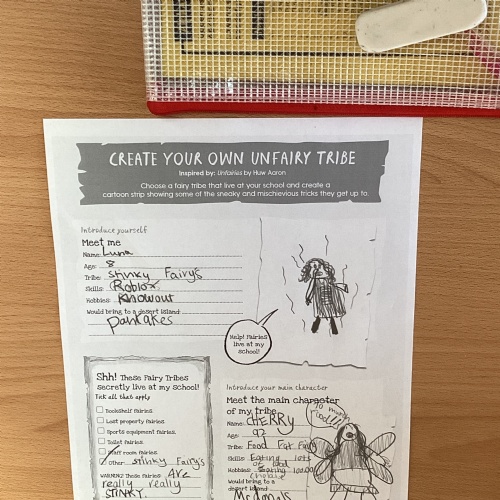 CREATE YOUR OWN UNFAIRY TRIBE
Inspired by: Unfairies by Huw Aaron
Choose a fairy tribe that live at your school and create a
cartoon strip showing some of the sneaky and mischievious tricks they get up to.
Introduce yourself
Meet me
Name: Luna
Age: 8
Tribe: stinky Fairy's
Skills: Roblox
Hobbies: Knowout
Would bring to a desert island:
Pancakes
Help! Fairies
live at my
school!
Shh! These Fairy Tribes
secretly live at my school!
Tick all that apply
Bookshelf fairies.
Lost property fairies.
Sports equipment fairies.
Toilet fairies.
Staff room fairies.
Other: stinky Fairy's
WARNING! These fairies: Are
really really
STINKY.
Introduce your main character
Meet the main character
of my tribe
Name: CHERRY
Age: 92
Tribe: Food Fat Fairy
Skills: Eating lots
of food
Hobbies: Eating
Would bring to a
desert island:
McDonals